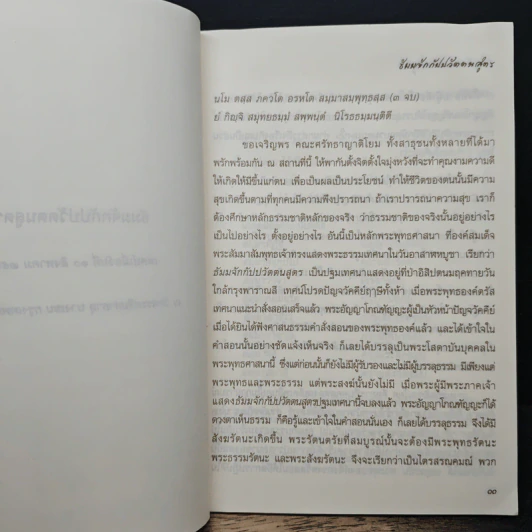 ธัมมจักกัปปวัตตนสูตร
นโม ตสฺส ภควโต อรหโต สมฺมาสมฺพุทธสฺส (๓ จบ)
ยํ กิญฺจิ สมุทยธมฺมํ สพฺพนฺตํ นิโรธธมฺมนฺติติ
ขอเจริญพร คณะศรัทธาญาติโยม ทั้งสาธุชนทั้งหลายที่ได้มา
พรักพร้อมกัน ณ สถานที่นี้ ให้พากันตั้งจิตตั้งใจมุ่งหวังที่จะทำคุณงามความดี
ให้เกิดให้มีขึ้นแก่ตน เพื่อเป็นผลเป็นประโยชน์ ทำให้ชีวิตของตนนั้นมีความ
สุขเกิดขึ้นตามที่ทุกคนมีความพึงปรารถนา ถ้าเราปรารถนาความสุข เราก็
ต้องศึกษาหลักธรรมชาติหลักของจริง ว่าธรรมชาติของจริงนั้นอยู่อย่างไร
เป็นไปอย่างไร ตั้งอยู่อย่างไร อันนี้เป็นหลักพระพุทธศาสนา ที่องค์สมเด็จ
พระสัมมาสัมพุทธเจ้าทรงแสดงพระธรรมเทศนาในวันอาสาฬหบูชา เรียกว่า
ธัมมจักกัปปวัตตนสูตร เป็นปฐมเทศนาแสดงอยู่ที่ป่าอิสิปตนมฤคทายวัน
ใกล้กรุงพาราณสี เทศน์โปรดปัญจวัคคีย์ฤาษีทั้งห้า เมื่อพระพุทธองค์ตรัส
เทศนาแนะนำสั่งสอนเสร็จแล้ว พระอัญญาโกณฑัญญะผู้เป็นหัวหน้าปัญจวัคคีย์
เมื่อได้ยินได้ฟังศาสนธรรมคำสั่งสอนของพระพุทธองค์แล้ว และได้เข้าใจใน
คำสอนนั้นอย่างชัดแจ้งเห็นจริง ก็เลยได้บรรลุเป็นพระโสดาบันบุคคลใน
พระพุทธศาสนานี้ ซึ่งแต่ก่อนนั้นก็ยังไม่มีผู้รับรองและไม่มีผู้บรรลุธรรม มีเพียงแต่
พระพุทธและพระธรรม แต่พระสงฆ์นั้นยังไม่มี เมื่อพระผู้มีพระภาคเจ้า
แสดงธัมมจักกัปปวัตตนสูตรปฐมเทศนานี้จบลงแล้ว พระอัญญาโกณฑัญญะก็ได้
ดวงตาเห็นธรรม ก็คือรู้และเข้าใจในคำสอนนั่นเอง ก็เลยได้บรรลุธรรม จึงได้มี
สังฆรัตนะเกิดขึ้น พระรัตนตรัยที่สมบูรณ์นั้นจะต้องมีพระพุทธรัตนะ
พระธรรมรัตนะ และพระสังฆรัตนะ จึงจะเรียกว่าเป็นไตรสรณคมณ์ พวก